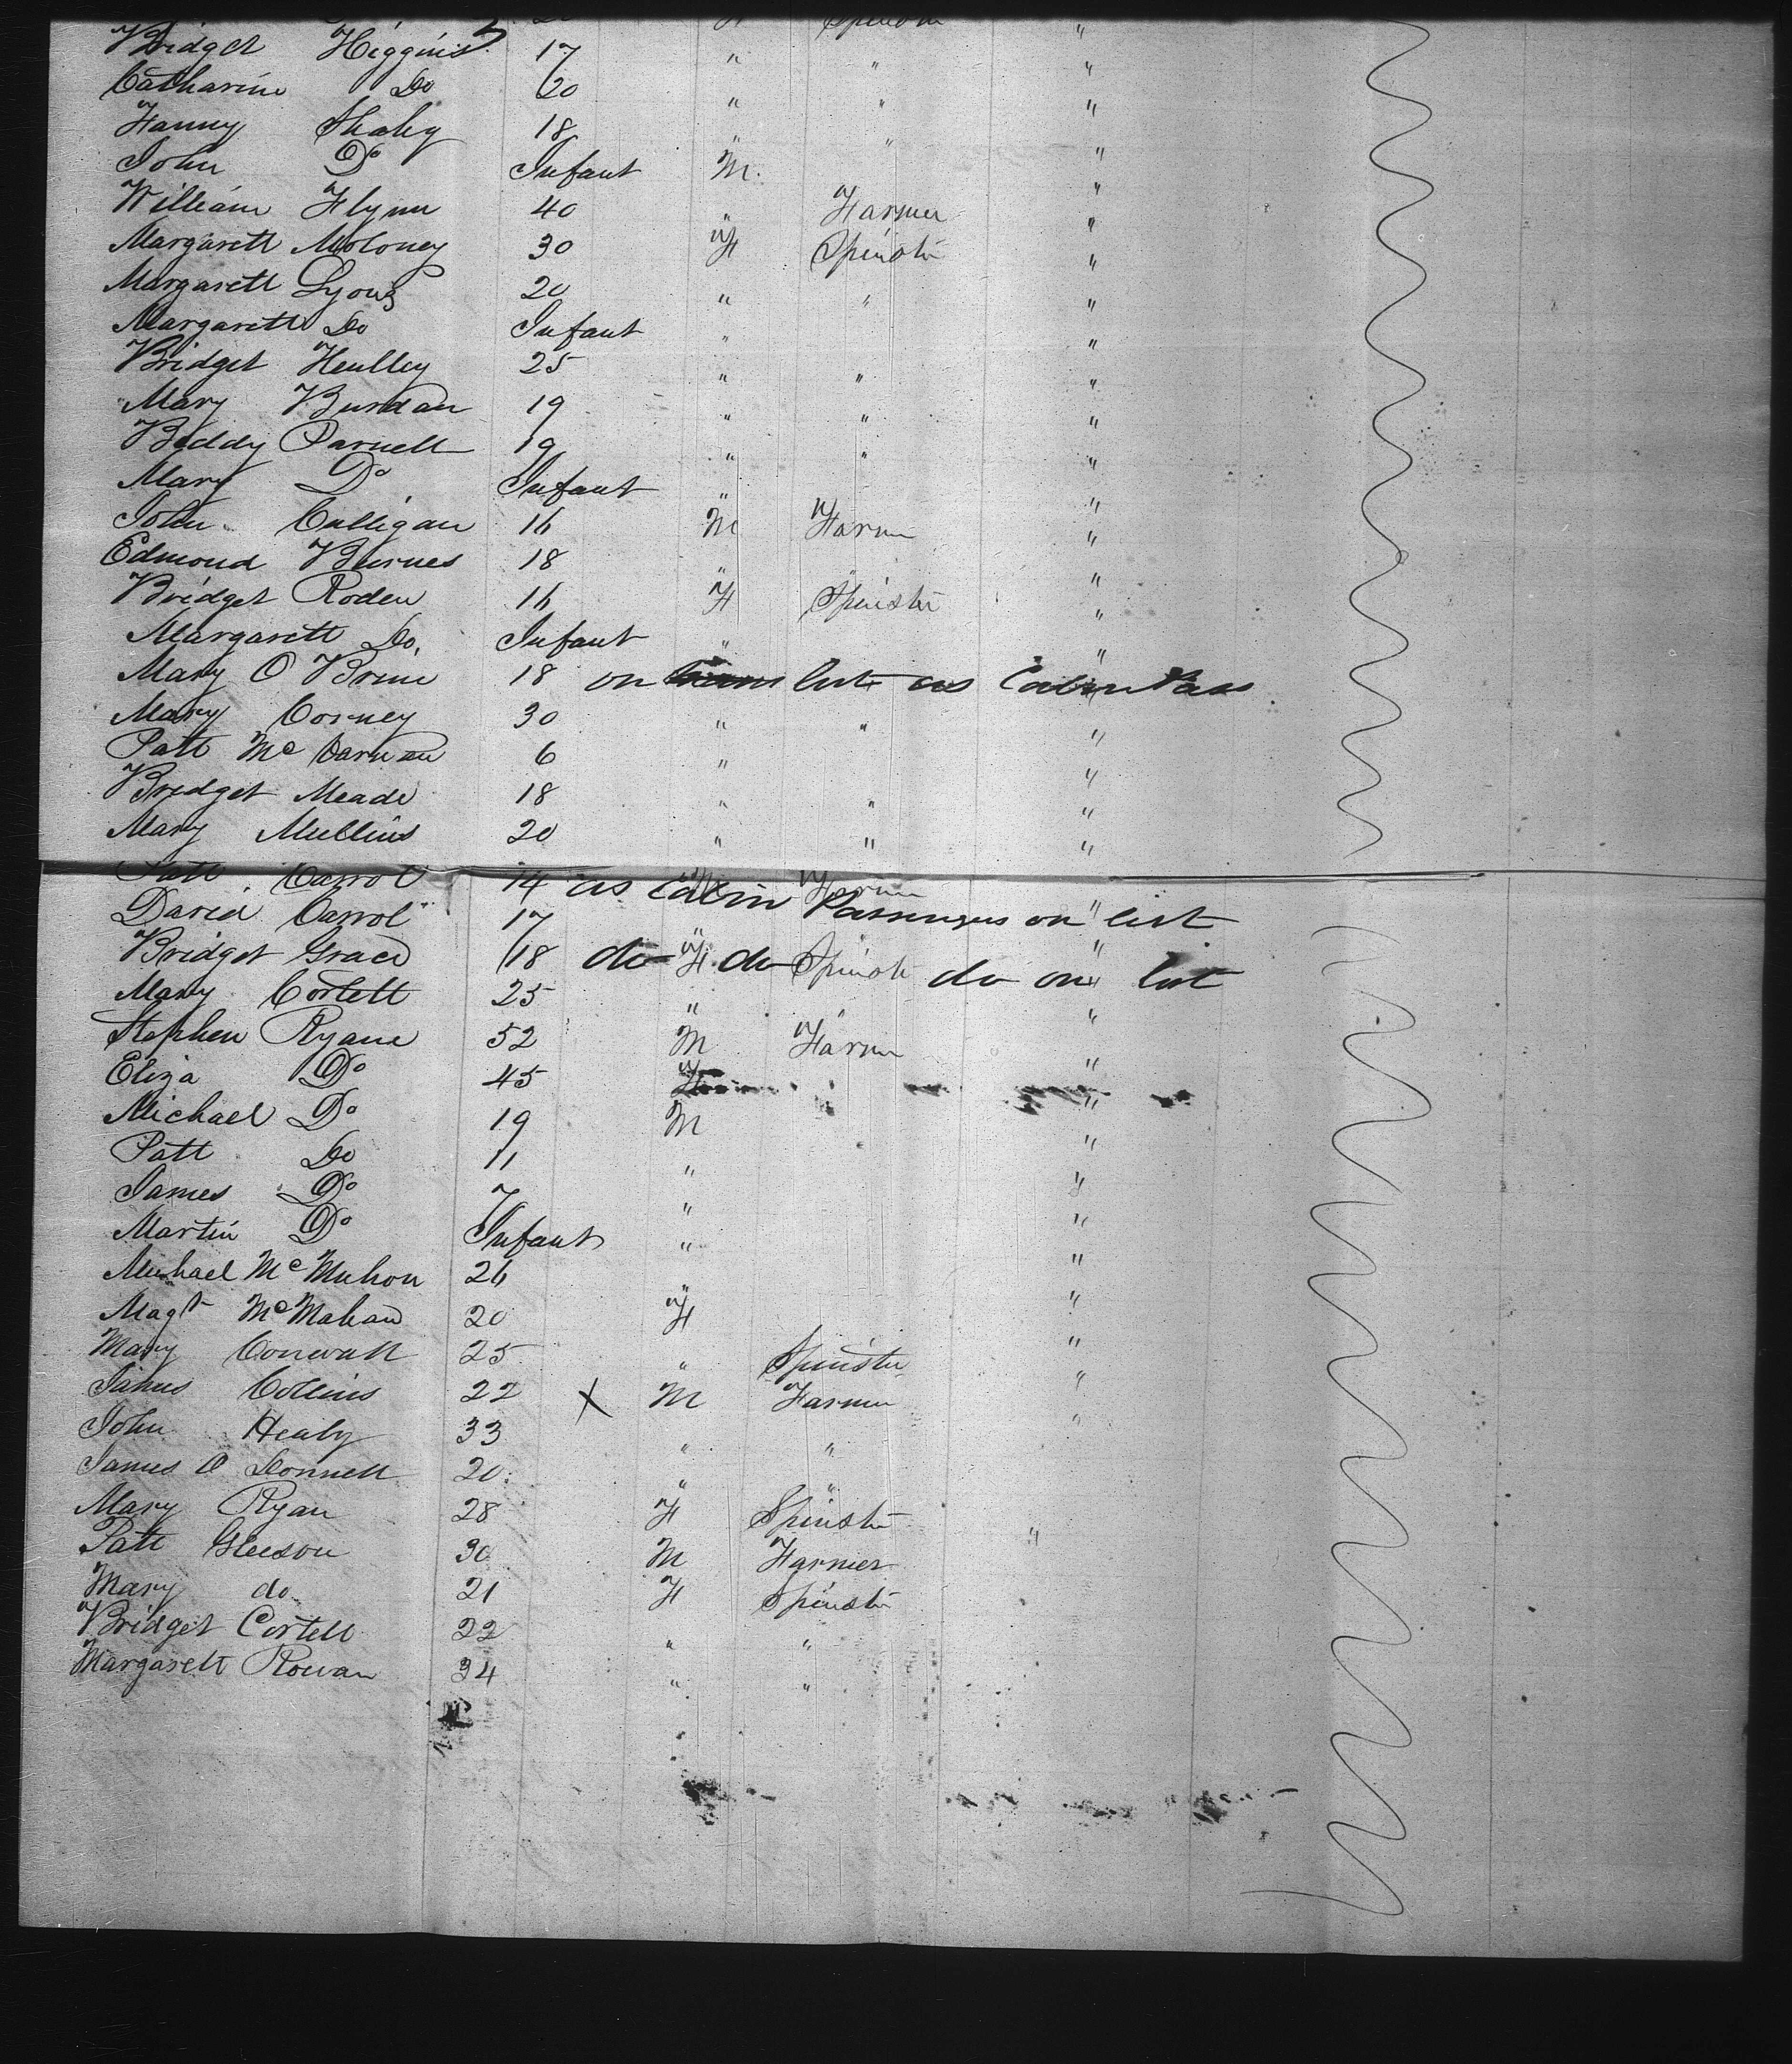 Spinster "
Bridget Higgins 17 " " "
Catharine Do 20 " " "
Fanny Shahy 18 " " "
John Do Infant M. "
William Flynn 40 " Farmer "
Margarett Moloney 30 F Spinstr "
Margarett Lyons 20 " " "
Margarett Do Infant " "
Bridget Heulley 25 " " "
Mary Burdan 19 " " "
Biddy Parnell 19 " " "
Mary Do Infant " "
John Culligan 16 M Farm "
Edmond Burnes 18 " " "
Bridget Roden 16 F Spinster "
Margarett Do. Infant " "
Mary O Brine 18 on list as Cabin Pass
Mary Corney 30 " " "
Patt Mc Carnan 6 " "
Bridget Meade 18 " " "
Mary Mullins 20 " " "
Patt Carrol 14 M Farm
as Cabin Passengers on list
David Carrol 17 "
Bridget Grace 18 F Spinstr "
do do do on list
Mary Cortell 25 " " "
Stephen Ryane 52 M Farm "
Eliza Do 45 F "
Michael Do 19 M "
Patt Do 11 " "
James Do 7 " "
Martin Do Infant " "
Michael McMuhon 26 " "
Magt McMahan 20 F "
Mary Conwall 25 " Spinster "
James Collins 22 X M Farmer "
John Healy 33 " "
James O Donnell 20 " "
Mary Ryan 28 F Spinstr
Patt Gleeson 30 M Farmer
Mary do 21 F Spinstr
Bridget Cortell 22 " "
Margarett Rowan 34 " "